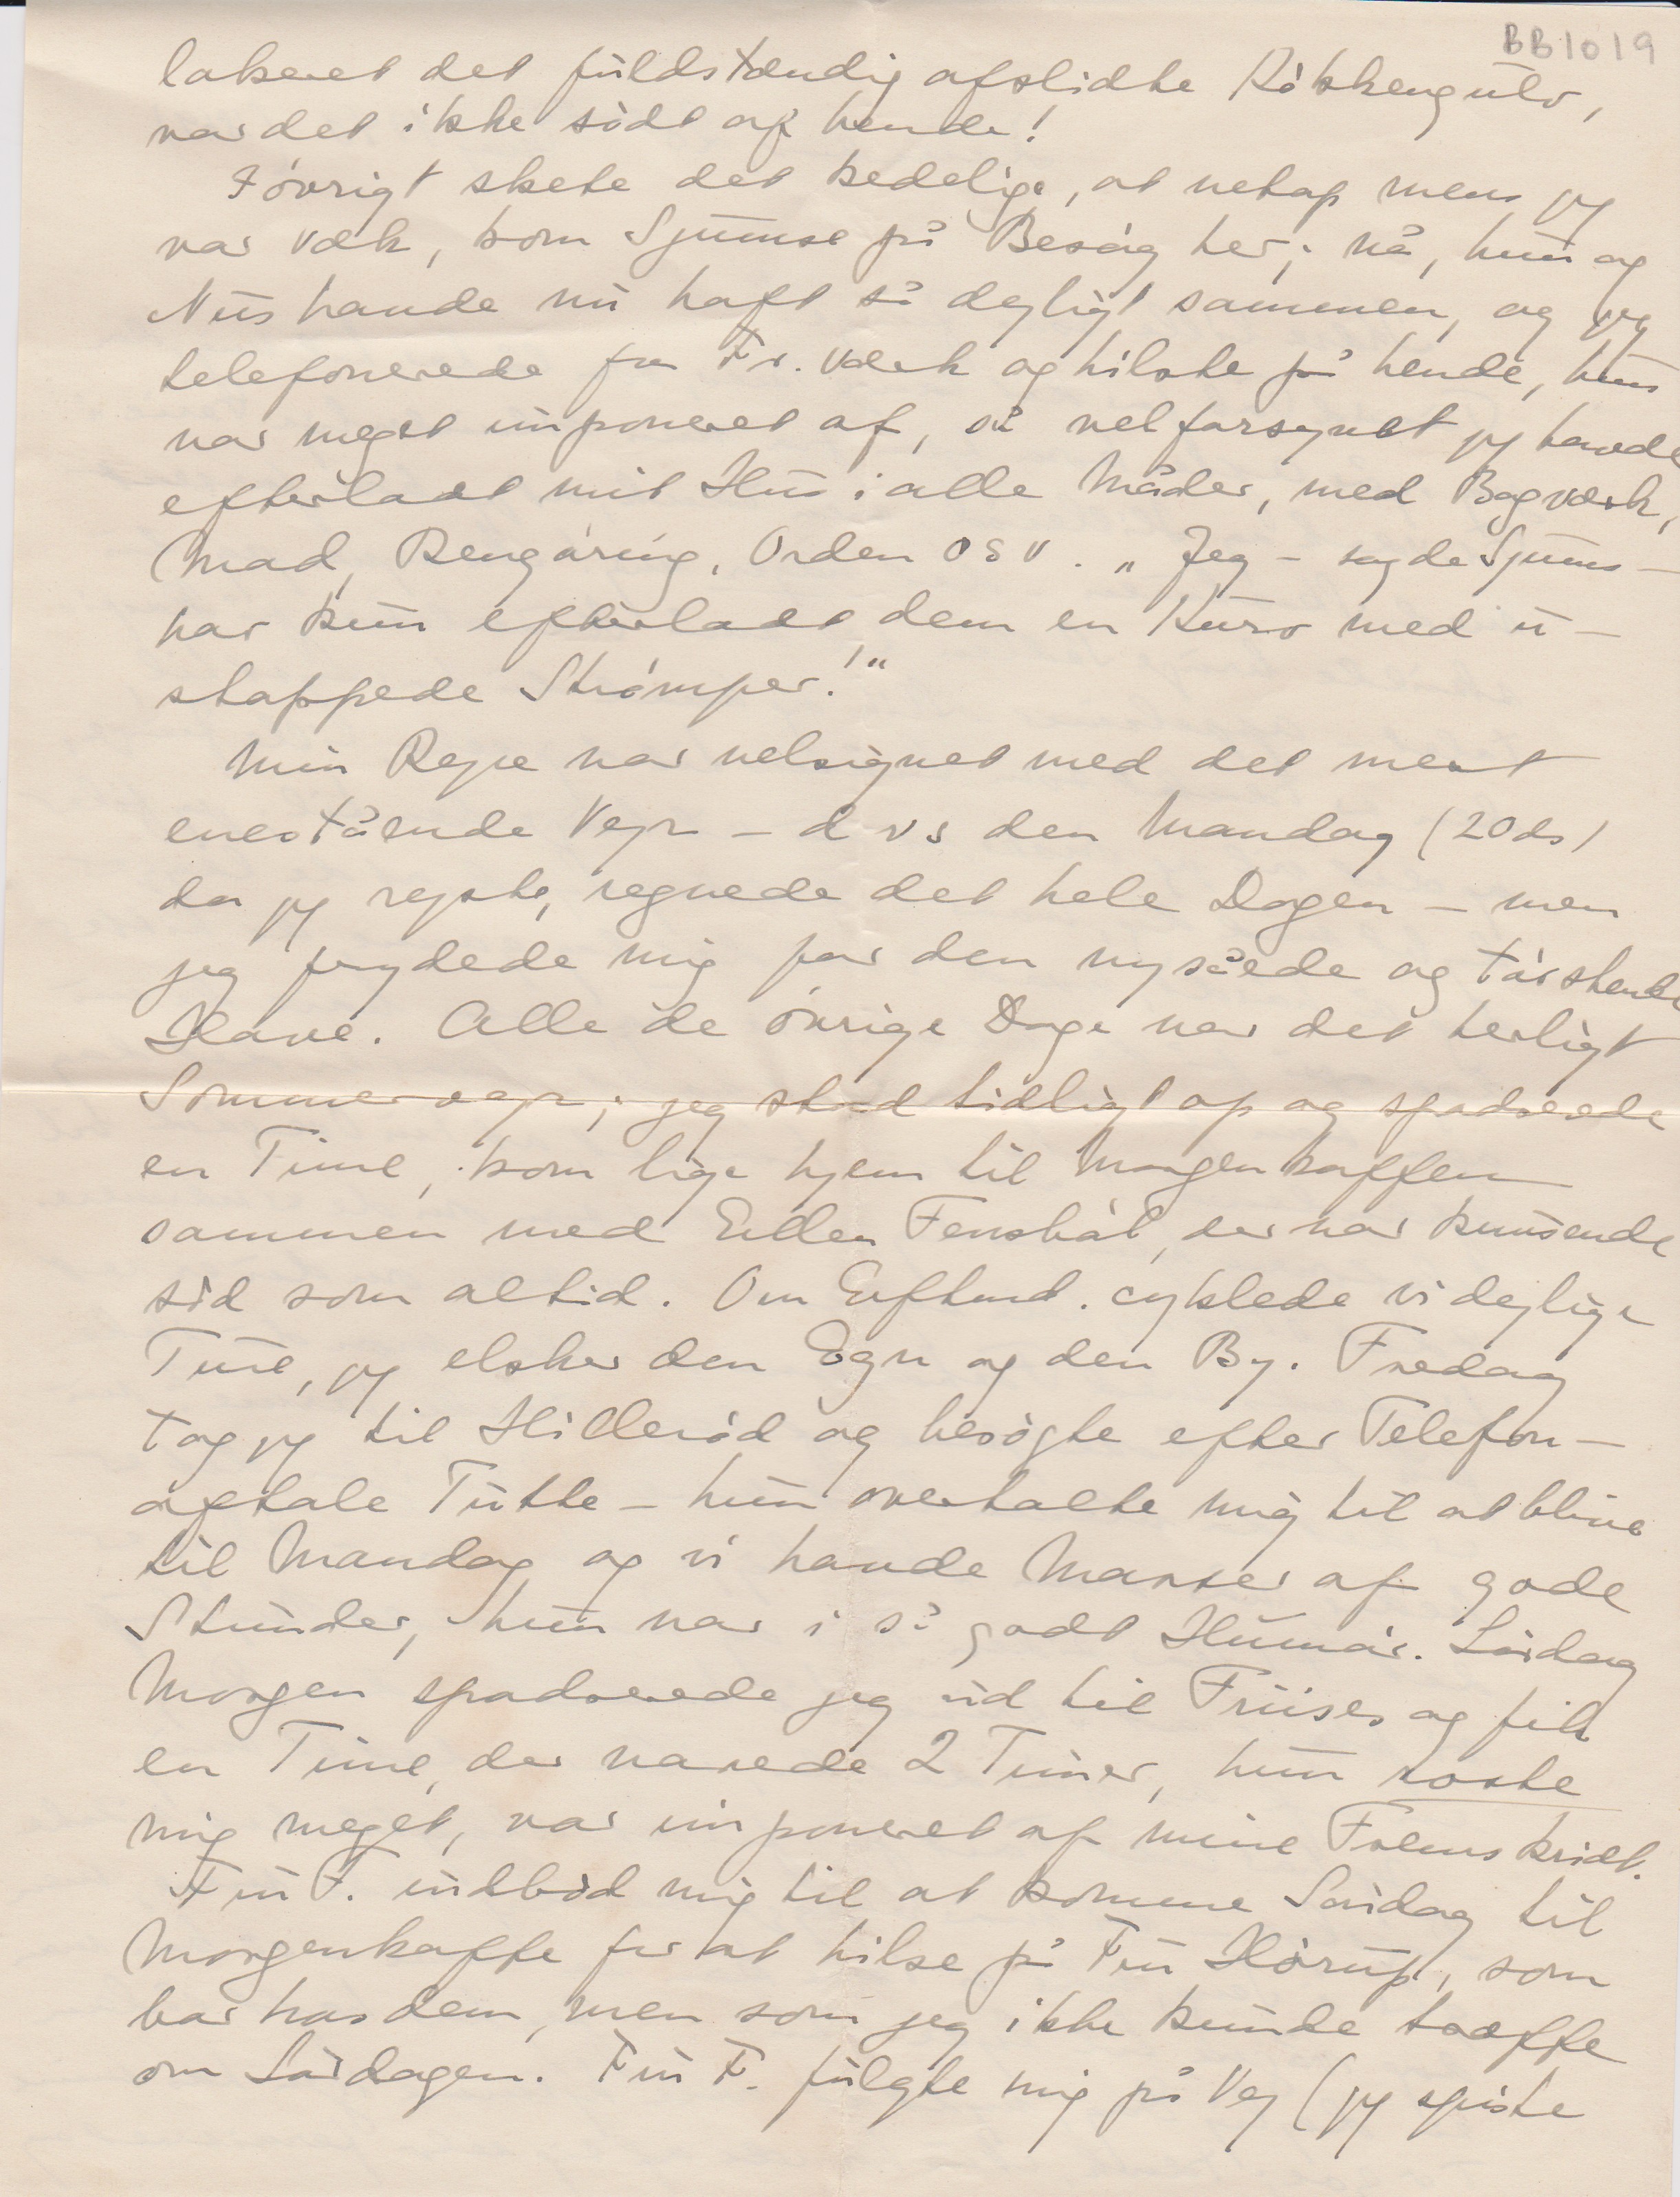 BB1019
lakeret det fuldstændig afslidte Køkkengulv,
var det ikke sødt af hende!
Iøvrigt skete det kedelige, at netop mens jeg
var væk, kom Sjumse på Besøg her; nå, hun og
Nus havde nu haft så dejligt sammen, og jeg
telefonerede fra Fr.værk og hilste på hende, hun
var meget imponeret af, så velforsynet jeg havde
efterladt mit Hus i alle Måder, med Bagværk,
Mad, Rengøring, Orden osv. „Jeg - sagde Sjums -
har kun efterladt dem en Kurv med u-
stoppede Strømper!"
Min Rejse var velsignet med det mest
enestående Vejr - dvs den Mandag (20ds)
da jeg rejste, regnede det hele Dagen - men
jeg frydede mig for den nysåede og tørstende
Have. Alle de øvrige Dage var det herligt
Sommervejr; jeg stod tidligt op og spadserede
en Time, kom lige hjem til Morgenkaffen
sammen med Ellen Fenskåt, der var knusende
sød som altid. Om Eftmd. cyklede vi dejlige
Ture, jeg elsker den Egn og den By. Fredag
tog jeg til Hillerød og besøgte efter Telefon-
aftale Tutte - hun overtalte mig til at blive
til Mandag og vi havde Masser af gode
Stunder, hun var i så godt Humør. Lørdag
Morgen spadserede jeg ud til Friises og fik
en Time, der varede 2 Timer, hun roste
mig meget, var imponeret af mine Fremskridt.
Fru F. indbød mig til at komme Søndag til
Morgenkaffe for at hilse på Fru Hørup, som
bor hos dem, men som jeg ikke kunde træffe
om Lørdagen. Fru F. fulgte mig på Vej (jeg spiste